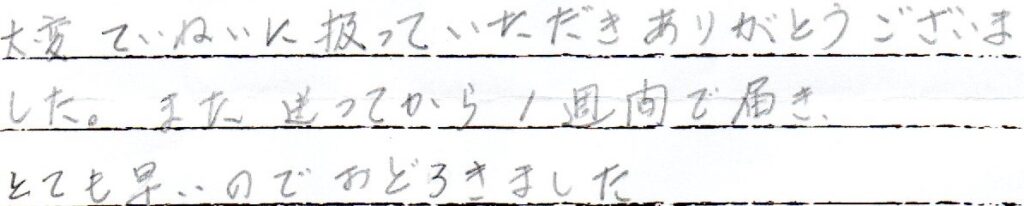 大変ていねいに扱っていただきありがとうございま
した。また送ってから1週間で届き、
とても早いのでおどろきました